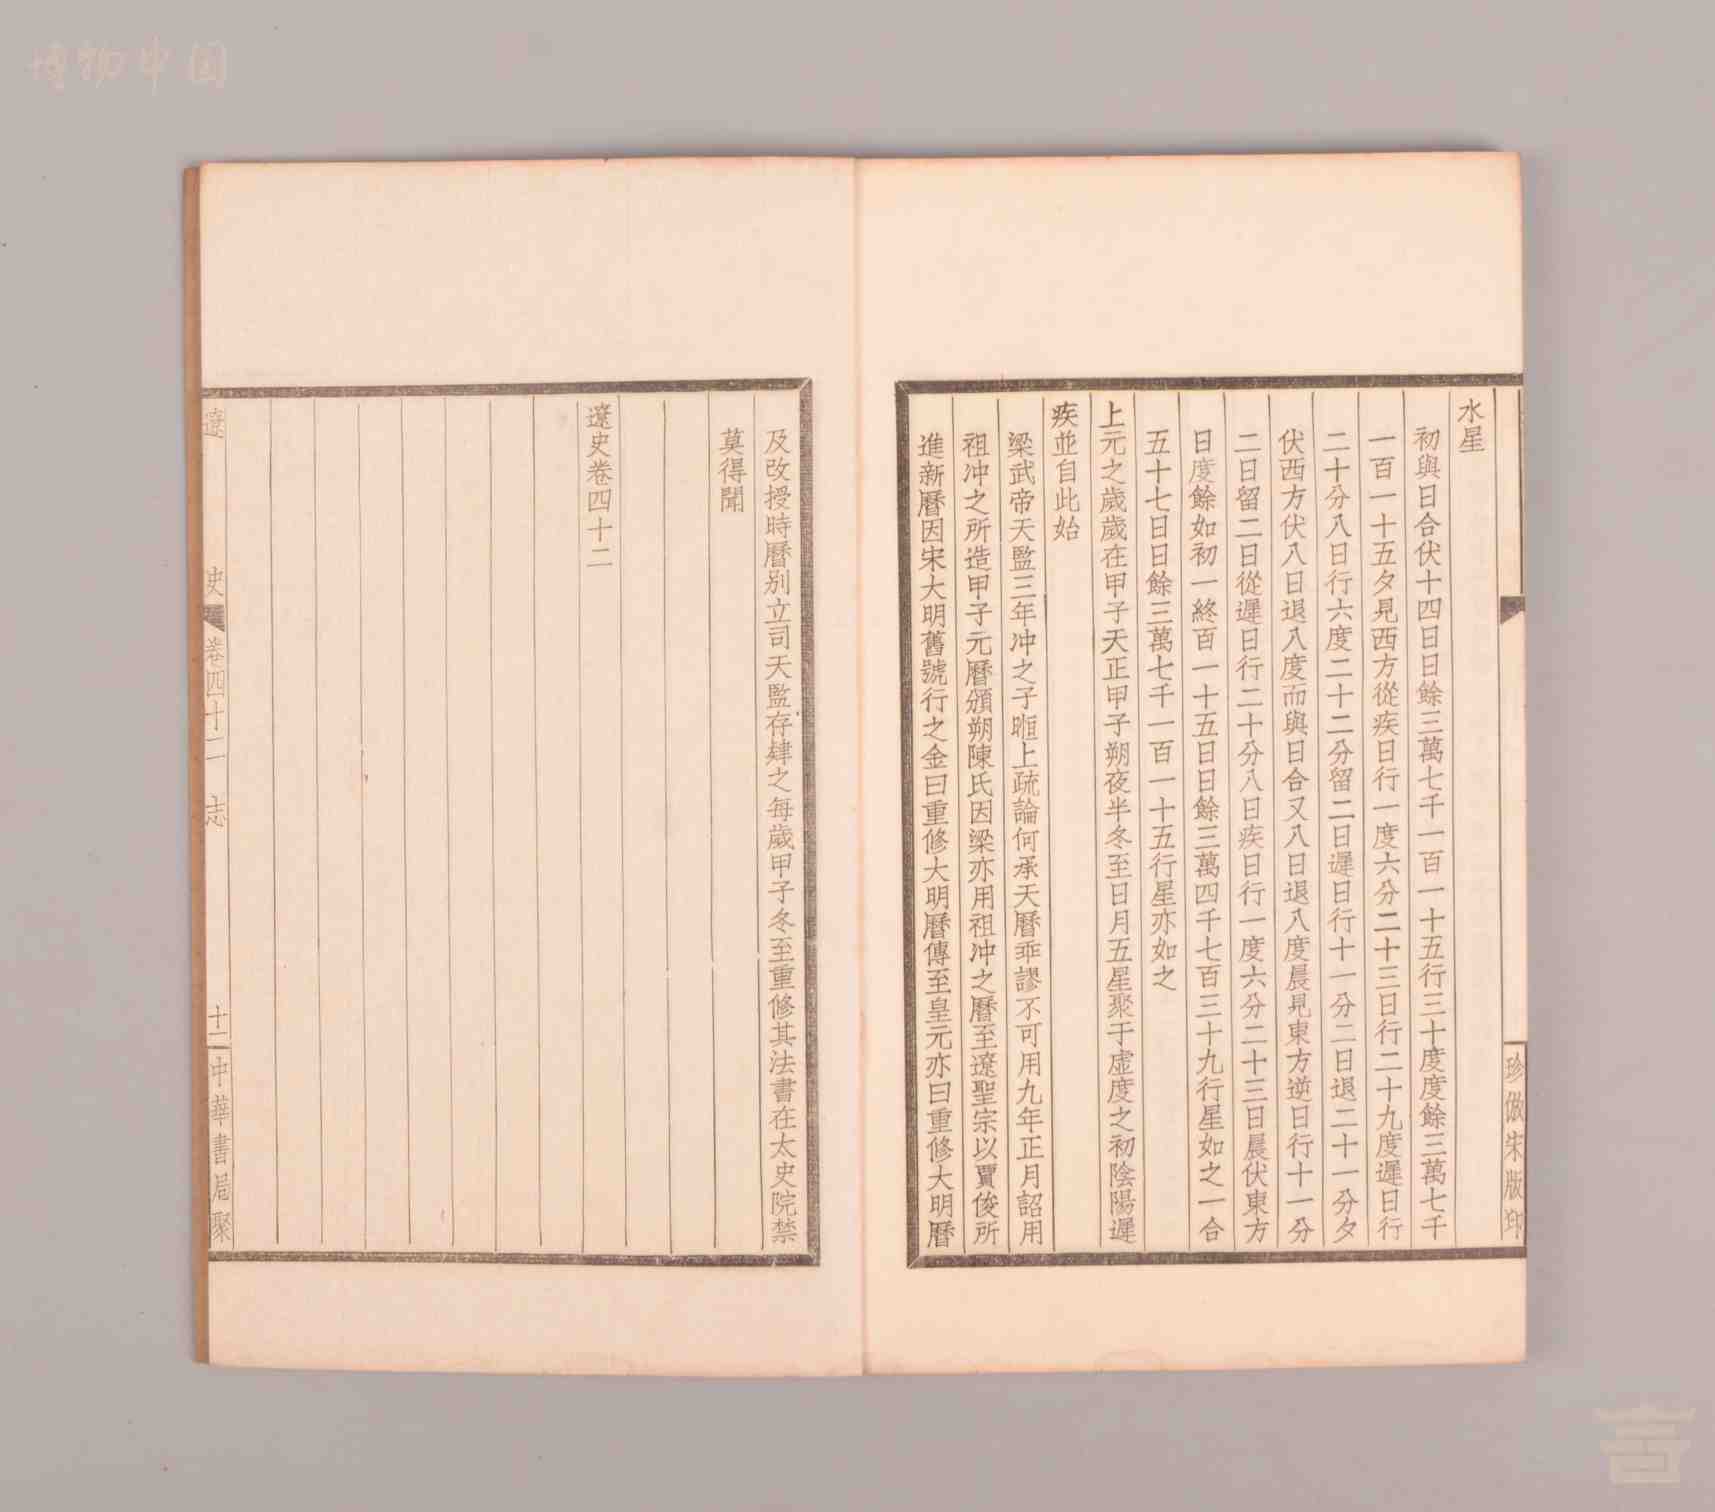 博物中国
珍倣宋版印
水星
初與日合伏十四日日餘三萬七千一百一十五行三十度度餘三萬七千
一百一十五夕見西方從疾日行一度六分二十三日行二十九度遲日行
二十分八日行六度二十二分留二日遲日行十一分二日退二十一分夕
伏西方伏八日退八度而與日合又八日退八度晨見東方逆日行十一分
二日留二日從遲日行二十分八日疾日行一度六分二十三日晨伏東方
日度餘如初一終百一十五日日餘三萬四千七百三十九行星如之一合
五十七日日餘三萬七千一百一十五行星亦如之
上元之歲歲在甲子天正甲子朔夜半冬至日月五星聚于虛度之初陰陽遲
疾並自此始
梁武帝天監三年冲之子暅上疏論何承天曆乖謬不可用九年正月詔用
祖冲之所造甲子元曆頒朔陳氏因梁亦用祖冲之曆至遼聖宗以賈俊所
進新曆因宋大明舊號行之金曰重修大明曆傳至皇元亦曰重修大明曆
及改授時曆別立司天監存肄之每歲甲子冬至重修其法書在太史院禁
莫得聞
遼史卷四十二
遼史 卷四十二 志 十二 中華書局聚